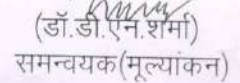 (डॉ.डी.एन.शर्मा)
समन्वयक(मूल्यांकन)